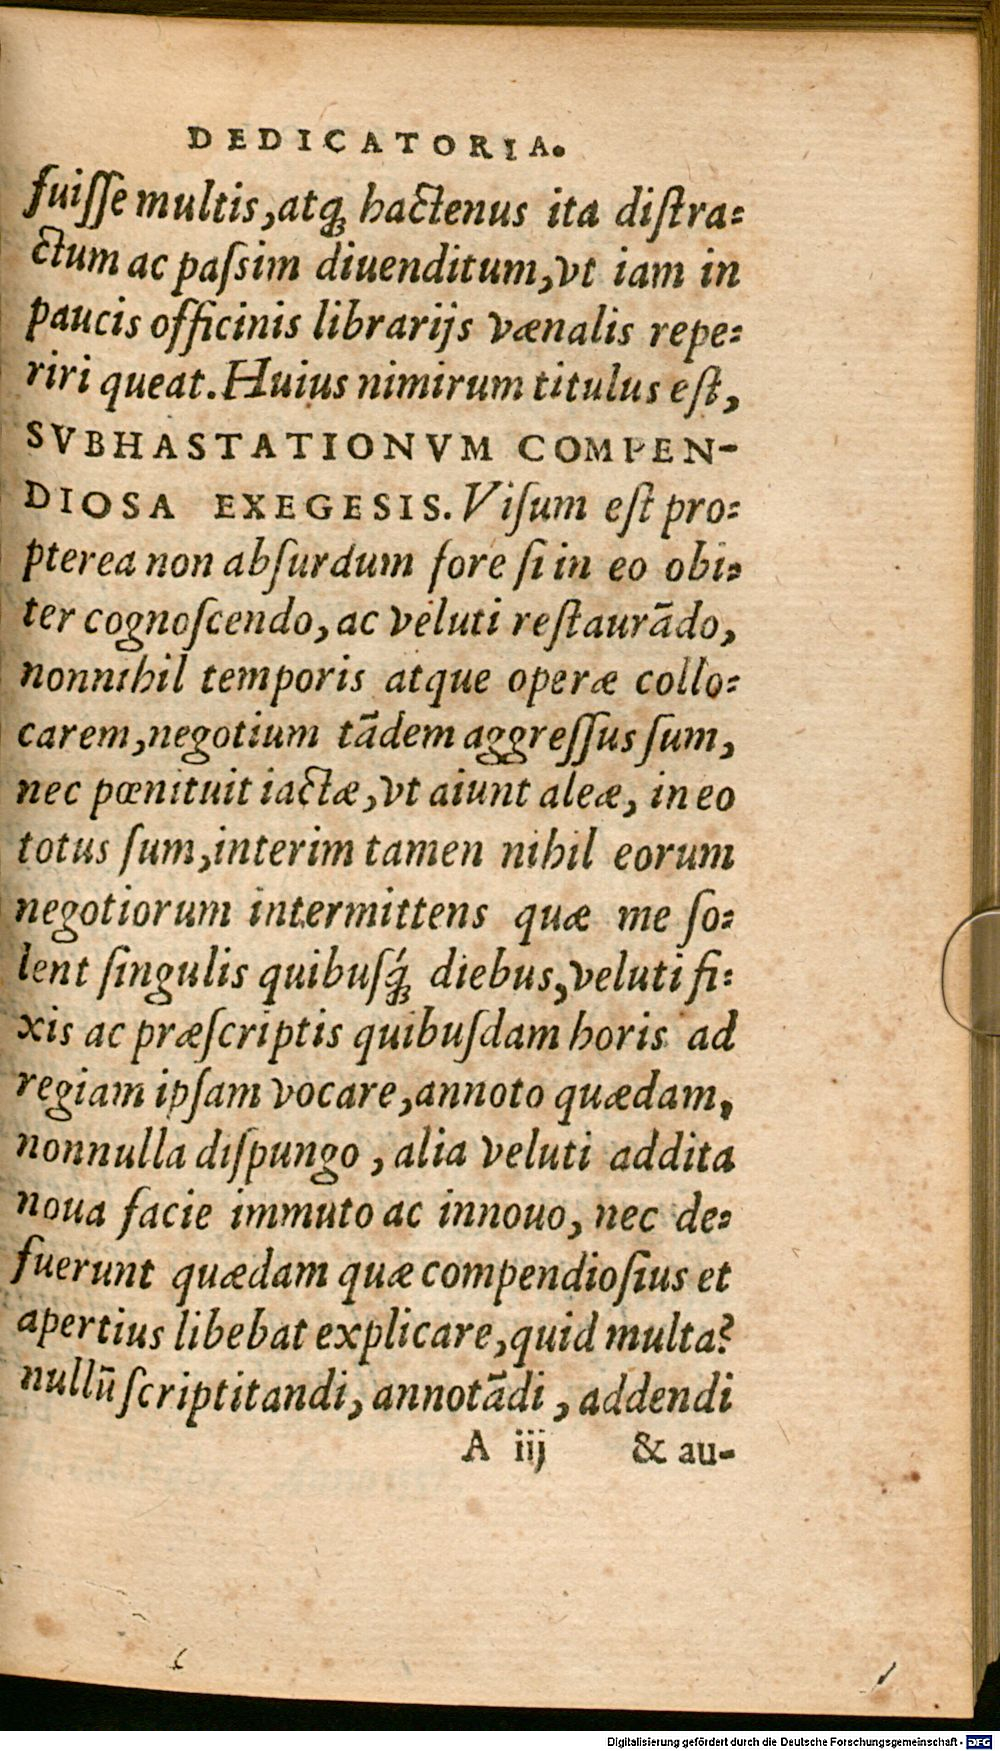 DEDICATORIA.
fuiſſe multis, atq̃ hactenus ita diſtra=
ctum ac paſsim diuenditum, vt iam in
paucis officinis librarijs vænalis repe=
riri queat. Huius nimirum titulus eſt,
SVBHASTATIONVM COMPEN-
DIOSA EXEGESIS. Viſum eſt pro=
pterea non abſurdum fore ſi in eo obi=
ter cognoſcendo, ac veluti reſtaurãdo,
nonnihil temporis atque operæ collo=
carem, negotium tãdem aggreſſus ſum,
nec pœnituit iactæ, vt aiunt aleæ, in eo
totus ſum, interim tamen nihil eorum
negotiorum intermittens quæ me ſo=
lent ſingulis quibuſq́ diebus, veluti fi=
xis ac præſcriptis quibuſdam horis ad
regiam ipſam vocare, annoto quædam,
nonnulla diſpungo, alia veluti addita
noua facie immuto ac innouo, nec de=
fuerunt quædam quæ compendioſius et
apertius libebat explicare, quid multa?
nullũ ſcriptitandi, annotãdi, addendi
A iij & au-
Digitalisierung gefördert durch die Deutsche Forschungsgemeinschaft - DFG